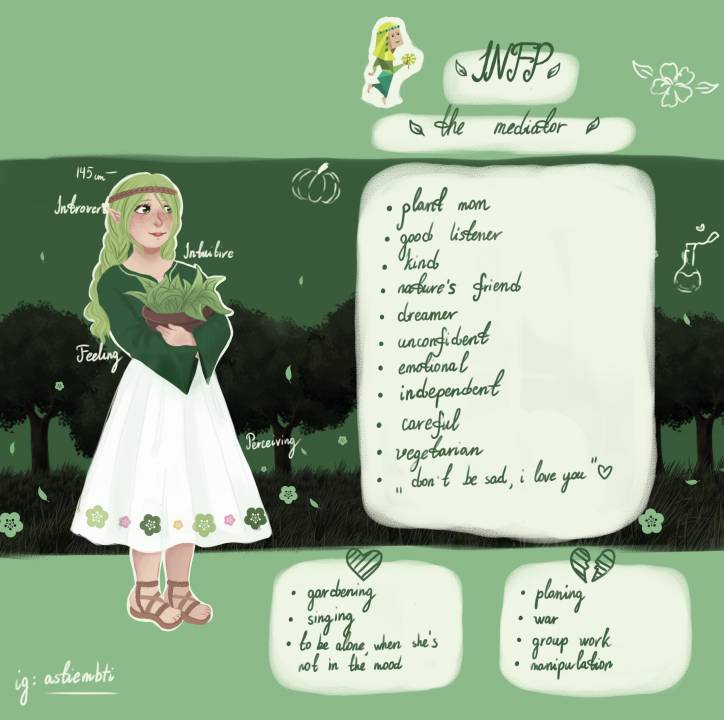 INFP
the mediator
145 cm
Introvert
Intuitive
Feeling
Perceiving
• plant mom
• good listener
• kind
• nature's friend
• dreamer
• unconfident
• emotional
• independent
• careful
• vegetarian
• "don't be sad, i love you" ♡
• gardening
• singing
• to be alone, when she's
not in the mood
• planing
• war
• group work
• manipulation
ig: astiembti